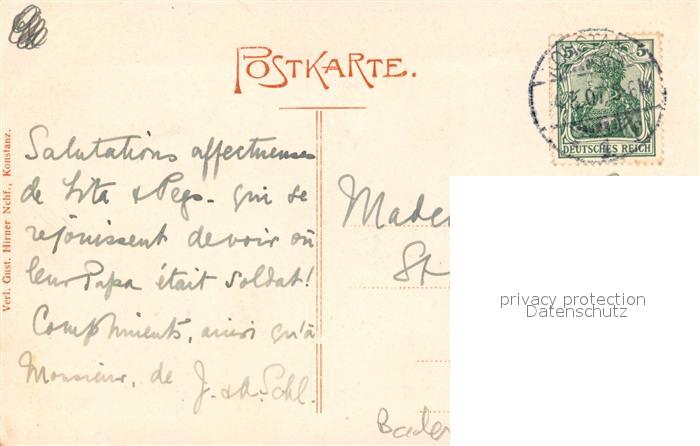 POSTKARTE.
5 5
DEUTSCHES REICH
Salutations affectueuses
de Lita & Pegs. qui se
réjouissent de voir où
leur Papa était soldat!
Compliments, ainsi qu'à
Monsieur, de J. & A. Schl.
Verl. Gust. Hirner Nchf., Konstanz.
Madem
St
Baden
privacy protection
Datenschutz